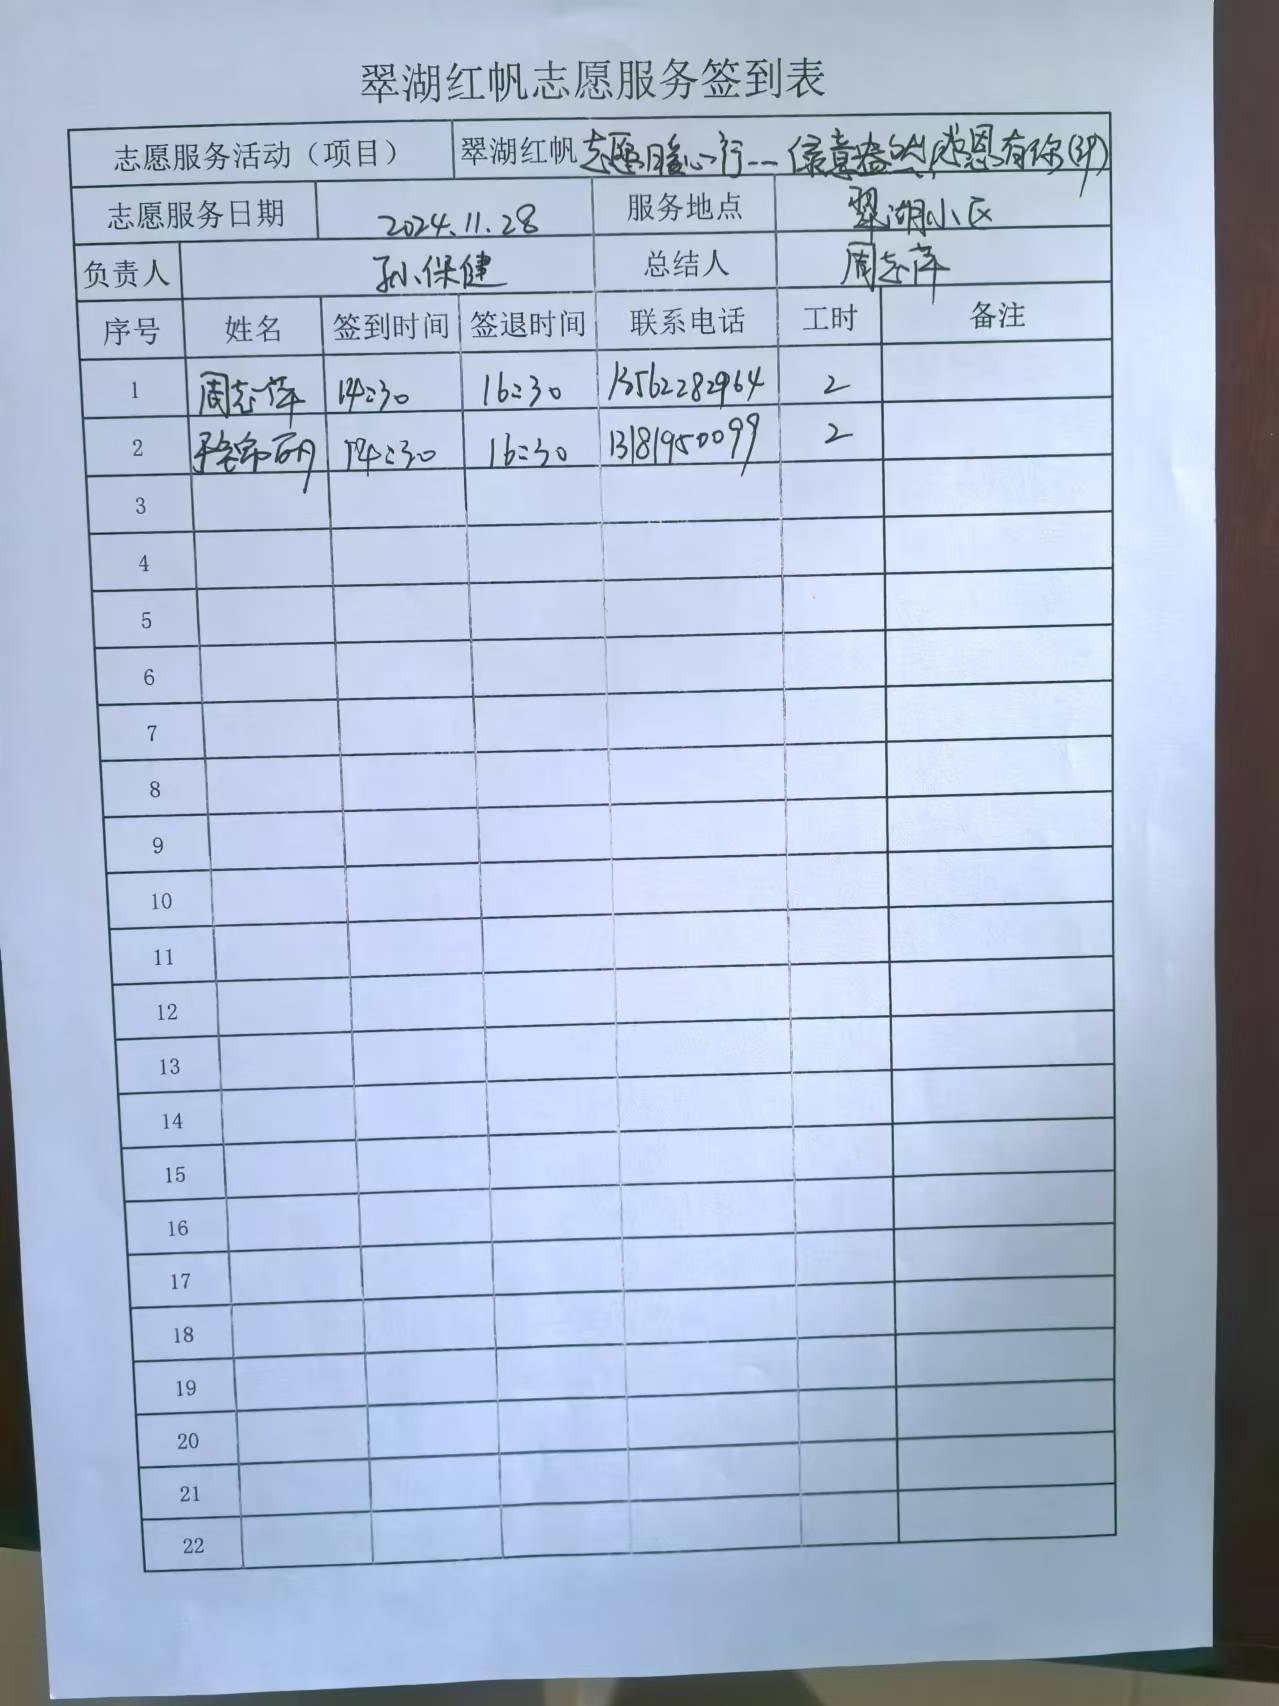 翠湖红帆志愿服务签到表
志愿服务活动（项目） 翠湖红帆志愿暖心行--绿意盎然,感恩有你
志愿服务日期 2024.11.28 服务地点 翠湖小区
负责人 孙保健 总结人 周志萍
序号 姓名 签到时间 签退时间 联系电话 工时 备注
1 周志萍 14:30 16:30 13562282964 2
2 14:30 16:30 13181950099 2
3
4
5
6
7
8
9
10
11
12
13
14
15
16
17
18
19
20
21
22